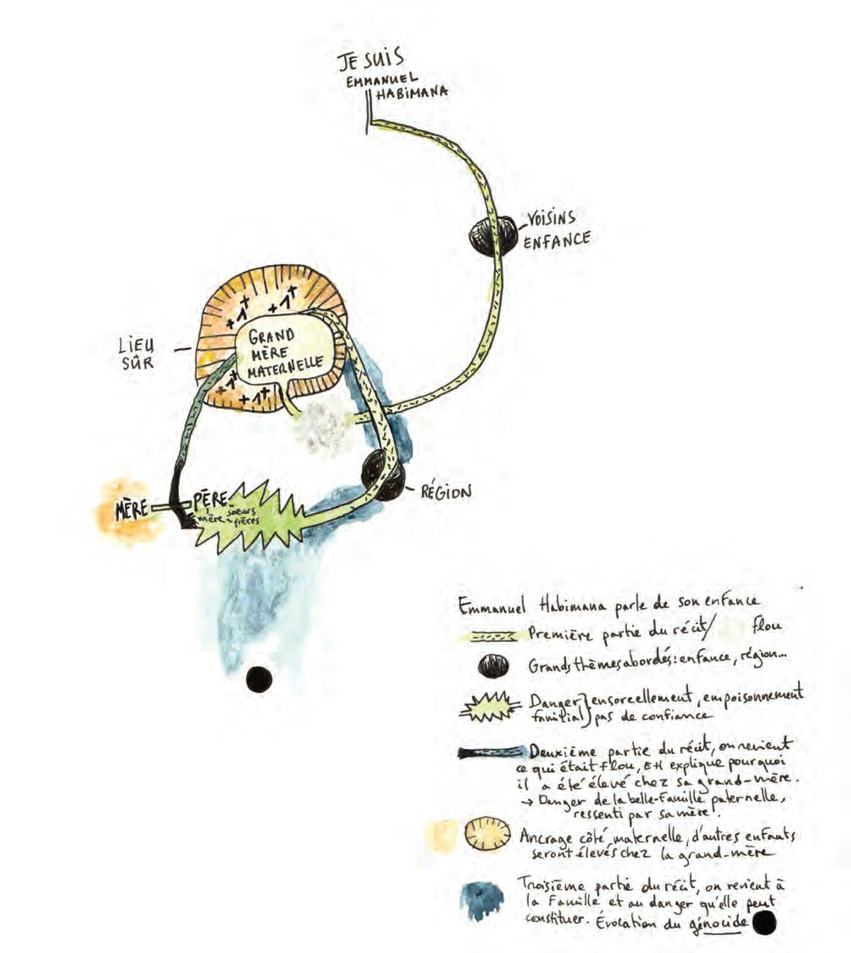 JE SUIS
EMMANUEL
HABIMANA
VOISINS
ENFANCE
LIEU
SÛR
GRAND
MÈRE
MATERNELLE
RÉGION
MÈRE
PÈRE
mère
soeurs
frères
Emmanuel Habimana parle de son enfance
Première partie du récit/ flou
Grands thèmes abordés: enfance, région...
Danger ensorcellement, empoisonnement
familial pas de confiance
Deuxième partie du récit, on revient
ce qui était flou, EH explique pourquoi
il a été élevé chez sa grand-mère.
→ Danger de la belle-famille paternelle,
ressenti par sa mère.
Ancrage côté maternelle, d'autres enfants
seront élevés chez la grand-mère
Troisième partie du récit, on revient à
la Famille et au danger qu'elle peut
constituer. Évocation du génocide